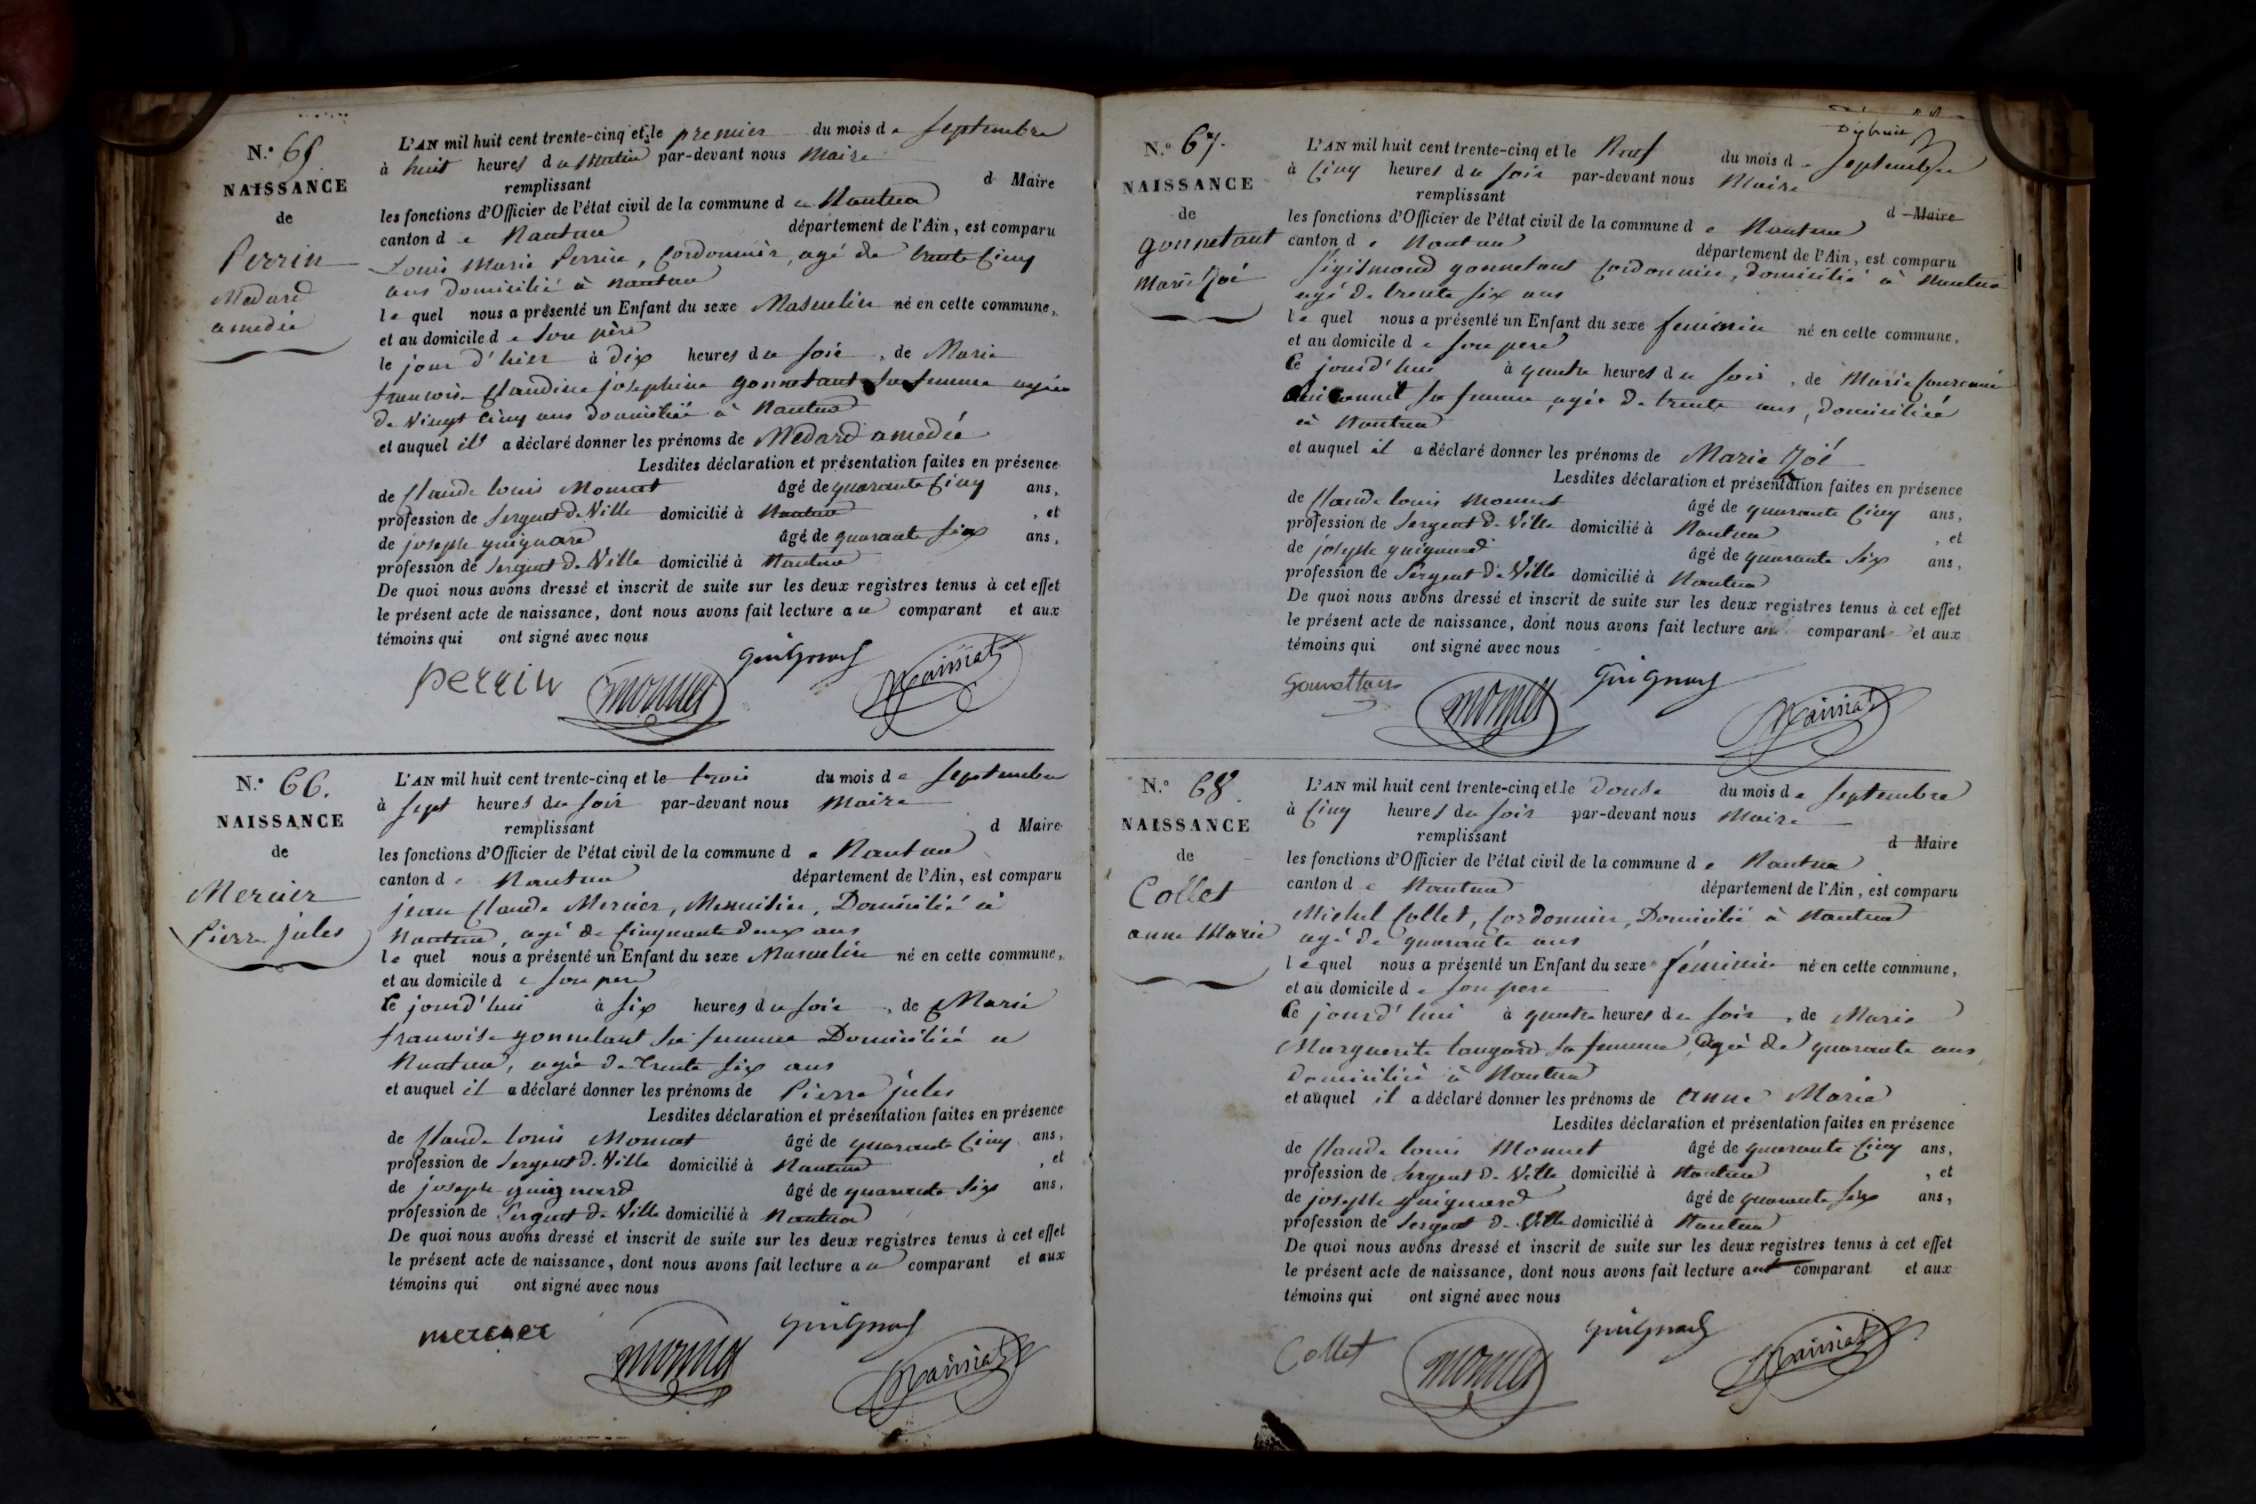 N.° 65
NAISSANCE
de
Perrin
Medard
amedée
L'AN mil huit cent trente-cinq et le premier du mois de Septembre
à huit heures du matin par-devant nous Maire
remplissant d Maire
les fonctions d'Officier de l'état civil de la commune de Nantua
canton de Nantua département de l'Ain, est comparu
Louis Marie Perrin, Cordonnier, agé de trente Cinq
ans domicilié à nantua
lequel nous a présenté un Enfant du sexe Masculin né en cette commune,
et au domicile de Son père
le jour d'hier à dix heures du Soir, de Marie
francoise Claudine josephine gonnetant Sa femme agée
de Vingt Cinq ans domiciliée à Nantua
et auquel il a déclaré donner les prénoms de Medard amedée
Lesdites déclaration et présentation faites en présence
de Claude louis Monnet âgé de quarante Cinq ans,
profession de Sergent de Ville domicilié à Nantua, et
de joseph guignard âgé de quarante Six ans,
profession de Sergent de Ville domicilié à Nantua
De quoi nous avons dressé et inscrit de suite sur les deux registres tenus à cet effet
le présent acte de naissance, dont nous avons fait lecture au comparant et aux
témoins qui ont signé avec nous
perrin monnet Guignard
N.° 66.
NAISSANCE
de
Mercier
Pierre jules
L'AN mil huit cent trente-cinq et le trois du mois de Septembre
à Sept heures du Soir par-devant nous Maire
remplissant d Maire
les fonctions d'Officier de l'état civil de la commune de Nantua
canton de Nantua département de l'Ain, est comparu
jean Claude Mercier, Menuisier, Domicilié à
Nantua, agé de Cinquante deux ans
lequel nous a présenté un Enfant du sexe Masculin né en cette commune,
et au domicile de Son pere
Ce jourd'hui à Six heures du Soir, de Marie
francoise gonnetant Sa femme Domiciliée a
Nantua, agée de Trente Six ans
et auquel il a déclaré donner les prénoms de Pierre jules
Lesdites déclaration et présentation faites en présence
de Claude louis Monnet âgé de quarante Cinq ans,
profession de Sergent de Ville domicilié à Nantua, et
de joseph guignard âgé de quarante Six ans,
profession de Sergent de Ville domicilié à Nantua
De quoi nous avons dressé et inscrit de suite sur les deux registres tenus à cet effet
le présent acte de naissance, dont nous avons fait lecture au comparant et aux
témoins qui ont signé avec nous
mercier monnet Guignard
N.° 67.
NAISSANCE
de
gonnetant
Marie Zoé
L'AN mil huit cent trente-cinq et le Neuf du mois de Septembre
à Cinq heures du Soir par-devant nous Maire
remplissant d Maire
les fonctions d'Officier de l'état civil de la commune de Nantua
canton de Nantua département de l'Ain, est comparu
Sigismond gonnetant Cordonnier, domicilié à Nantua
agé de trente Six ans
lequel nous a présenté un Enfant du sexe feminin né en cette commune,
et au domicile de Son pere
Ce jourd'hui à quatre heures du Soir, de Marie
Sa femme, agée de trente ans, domiciliée
à Nantua
et auquel il a déclaré donner les prénoms de Marie Zoé
Lesdites déclaration et présentation faites en présence
de Claude louis Monnet âgé de quarante Cinq ans,
profession de Sergent de Ville domicilié à Nantua, et
de joseph guignard âgé de quarante Six ans,
profession de Sergent de Ville domicilié à Nantua
De quoi nous avons dressé et inscrit de suite sur les deux registres tenus à cet effet
le présent acte de naissance, dont nous avons fait lecture au comparant et aux
témoins qui ont signé avec nous
monnet Guignard
N.° 68.
NAISSANCE
de
Collet
anne Marie
L'AN mil huit cent trente-cinq et le Douse du mois de Septembre
à Cinq heures du Soir par-devant nous Maire
remplissant d Maire
les fonctions d'Officier de l'état civil de la commune de Nantua
canton de Nantua département de l'Ain, est comparu
Michel Collet, Cordonnier, Domicilié à Nantua
agé de quarante ans
lequel nous a présenté un Enfant du sexe féminin né en cette commune,
et au domicile de Son pere
Ce jourd'hui à quatre heures du Soir, de Marie
Marguerite Sa femme, agée de quarante ans
domiciliée à Nantua
et auquel il a déclaré donner les prénoms de anne Marie
Lesdites déclaration et présentation faites en présence
de Claude louis Monnet âgé de quarante Cinq ans,
profession de Sergent de Ville domicilié à Nantua, et
de joseph guignard âgé de quarante Six ans,
profession de Sergent de Ville domicilié à Nantua
De quoi nous avons dressé et inscrit de suite sur les deux registres tenus à cet effet
le présent acte de naissance, dont nous avons fait lecture au comparant et aux
témoins qui ont signé avec nous
Collet monnet Guignard